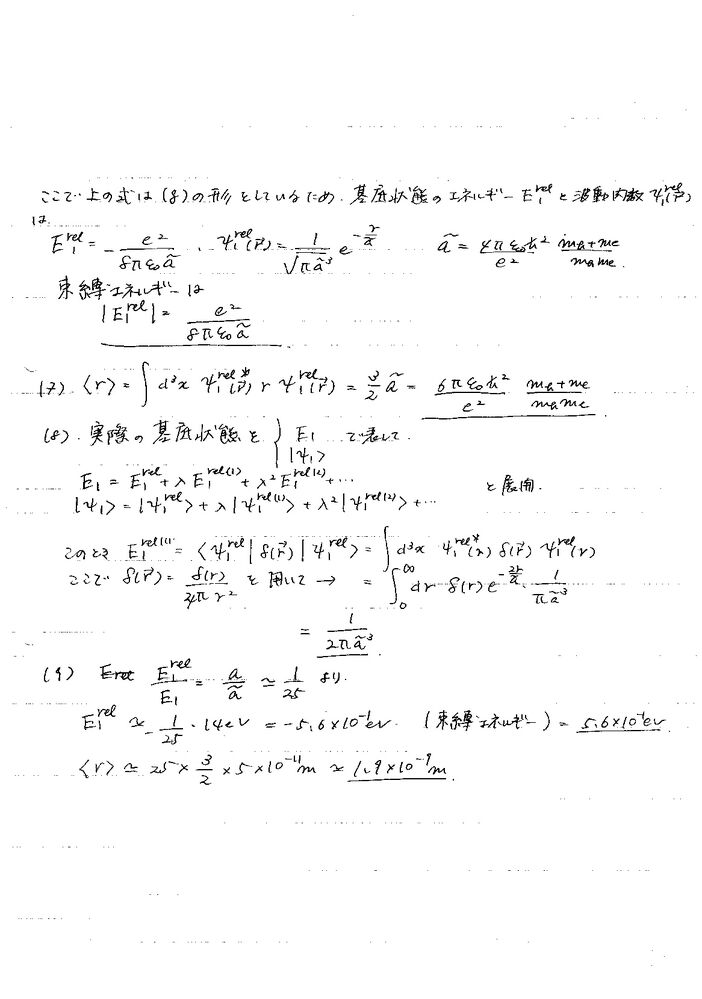 ここで上の式は(8)の形をしているため、基底状態のエネルギーE₁^rel と波動関数ψ₁^rel(r⃗)
は
E₁^rel = - e²/(8πε₀ã) 、 ψ₁^rel(r⃗) = 1/√(πã³) e^(-r/ã)   ã = (4πε₀ħ²/e²) (m_a+m_e)/(m_a m_e).
束縛エネルギーは
|E₁^rel| = e²/(8πε₀ã)
(7) ⟨r⟩ = ∫d³x ψ₁^rel*(r⃗) r ψ₁^rel(r⃗) = 3/2 ã = (6πε₀ħ²/e²) (m_a+m_e)/(m_a m_e).
(8). 実際の基底状態を { E₁ |ψ₁⟩ で表して.
E₁ = E₁^rel + λE₁^rel(1) + λ²E₁^rel(2) + ⋯
|ψ₁⟩ = |ψ₁^rel⟩ + λ|ψ₁^rel(1)⟩ + λ²|ψ₁^rel(2)⟩ + ⋯ と展開.
このとき E₁^rel(1) = ⟨ψ₁^rel|δ(r⃗)|ψ₁^rel⟩ = ∫d³x ψ₁^rel*(r) δ(r⃗) ψ₁^rel(r)
ここで δ(r⃗) = δ(r)/(4πr²) を用いて → = ∫₀^∞ dr δ(r) e^(-2r/ã) · 1/(πã³)
= 1/(2πã³).
(9) E₁^rel/E₁ = a/ã ≃ 1/25 より.
E₁^rel ≃ -1/25 · 14eV = -5.6×10⁻¹eV. (束縛エネルギー) = 5.6×10⁻¹eV
⟨r⟩ ≃ 25 × 3/2 × 5×10⁻¹¹m ≃ 1.9×10⁻⁹m.